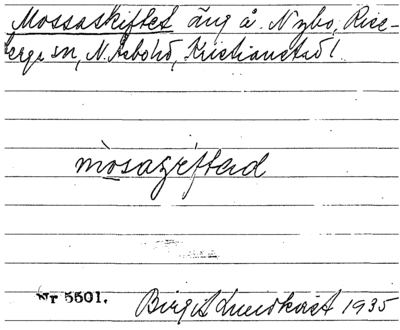 Mossaskiftet äng å. Nybo, Rise-
berga sn, N. Åsbohd, Kristianstad l.
mosaʒifted
Nr 5501.
Birgit Lundkvist 1935